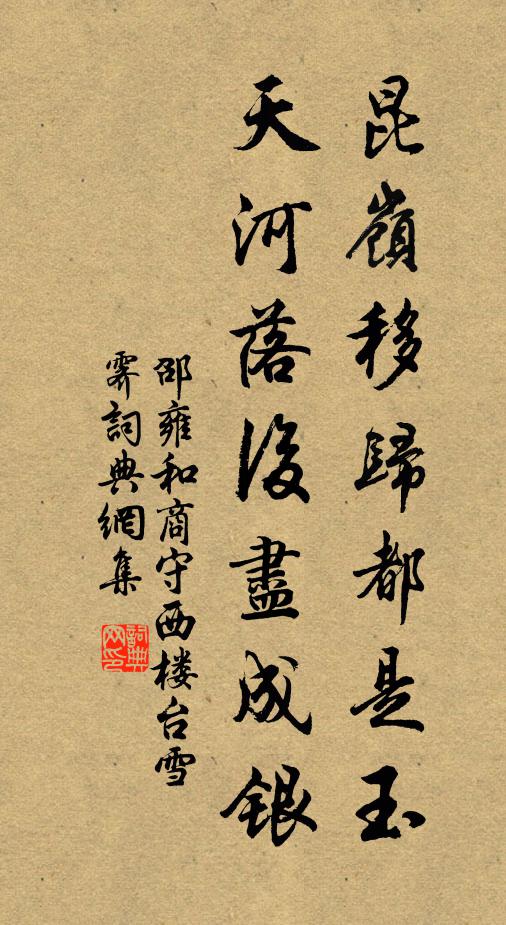 昆嶺移歸都是玉
天河落後盡成銀
邵雍和商守西楼台雪
霽詞典網集
詞典
网印